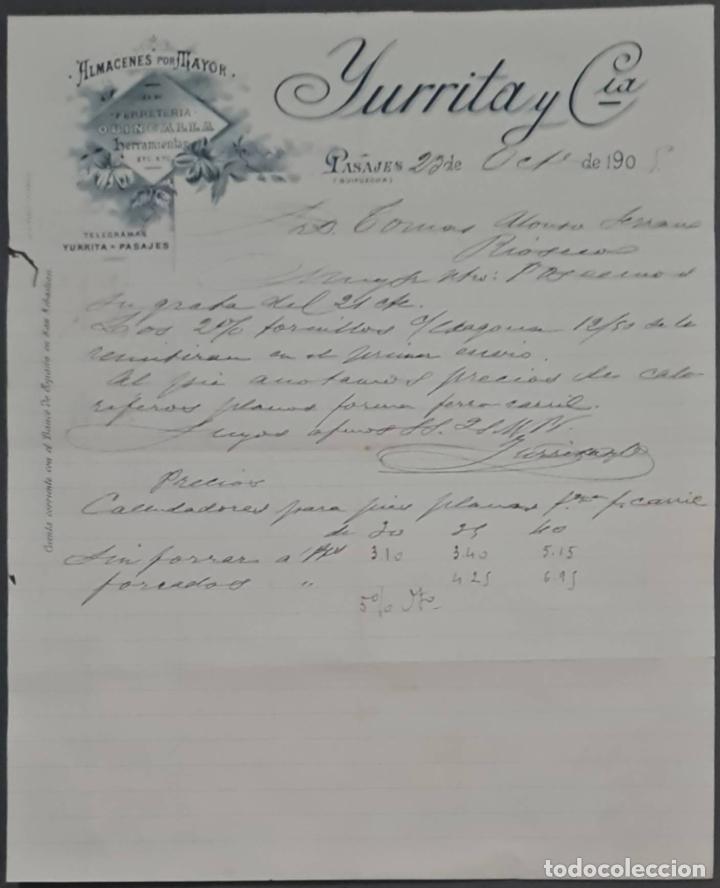 ALMACENES POR MAYOR
DE
FERRETERIA
QUINCALLA
herramientas
ETC. ETC.
TELEGRAMAS
YURRITA - PASAJES
Yurrita y Cia
PASAJES 23 de Octe de 1905
(GUIPUZCOA)
Cuenta corriente con el Banco de España en San Sebastian
Sr. D. Tomas Alonso Serrano
Rioseco
Muy Sr. ntro: Poseemos
su grata del 21 cte.
Los 2% tornillos c/ exagona 12/50 se le
remitiran en el primer envio.
Al pie anotamos precios de calo
riferos planos forma ferro-carril.
Suyos afmos SS. Q S M B.
Yurrita y Cia
Precios
Calentadores para pies planos fma f. carril
de 30 35 40
Sin forrar a Pts 3.10 3.40 5.15
forrados " 4.25 6.95
5% Dto.
todocoleccion
todocoleccion.net